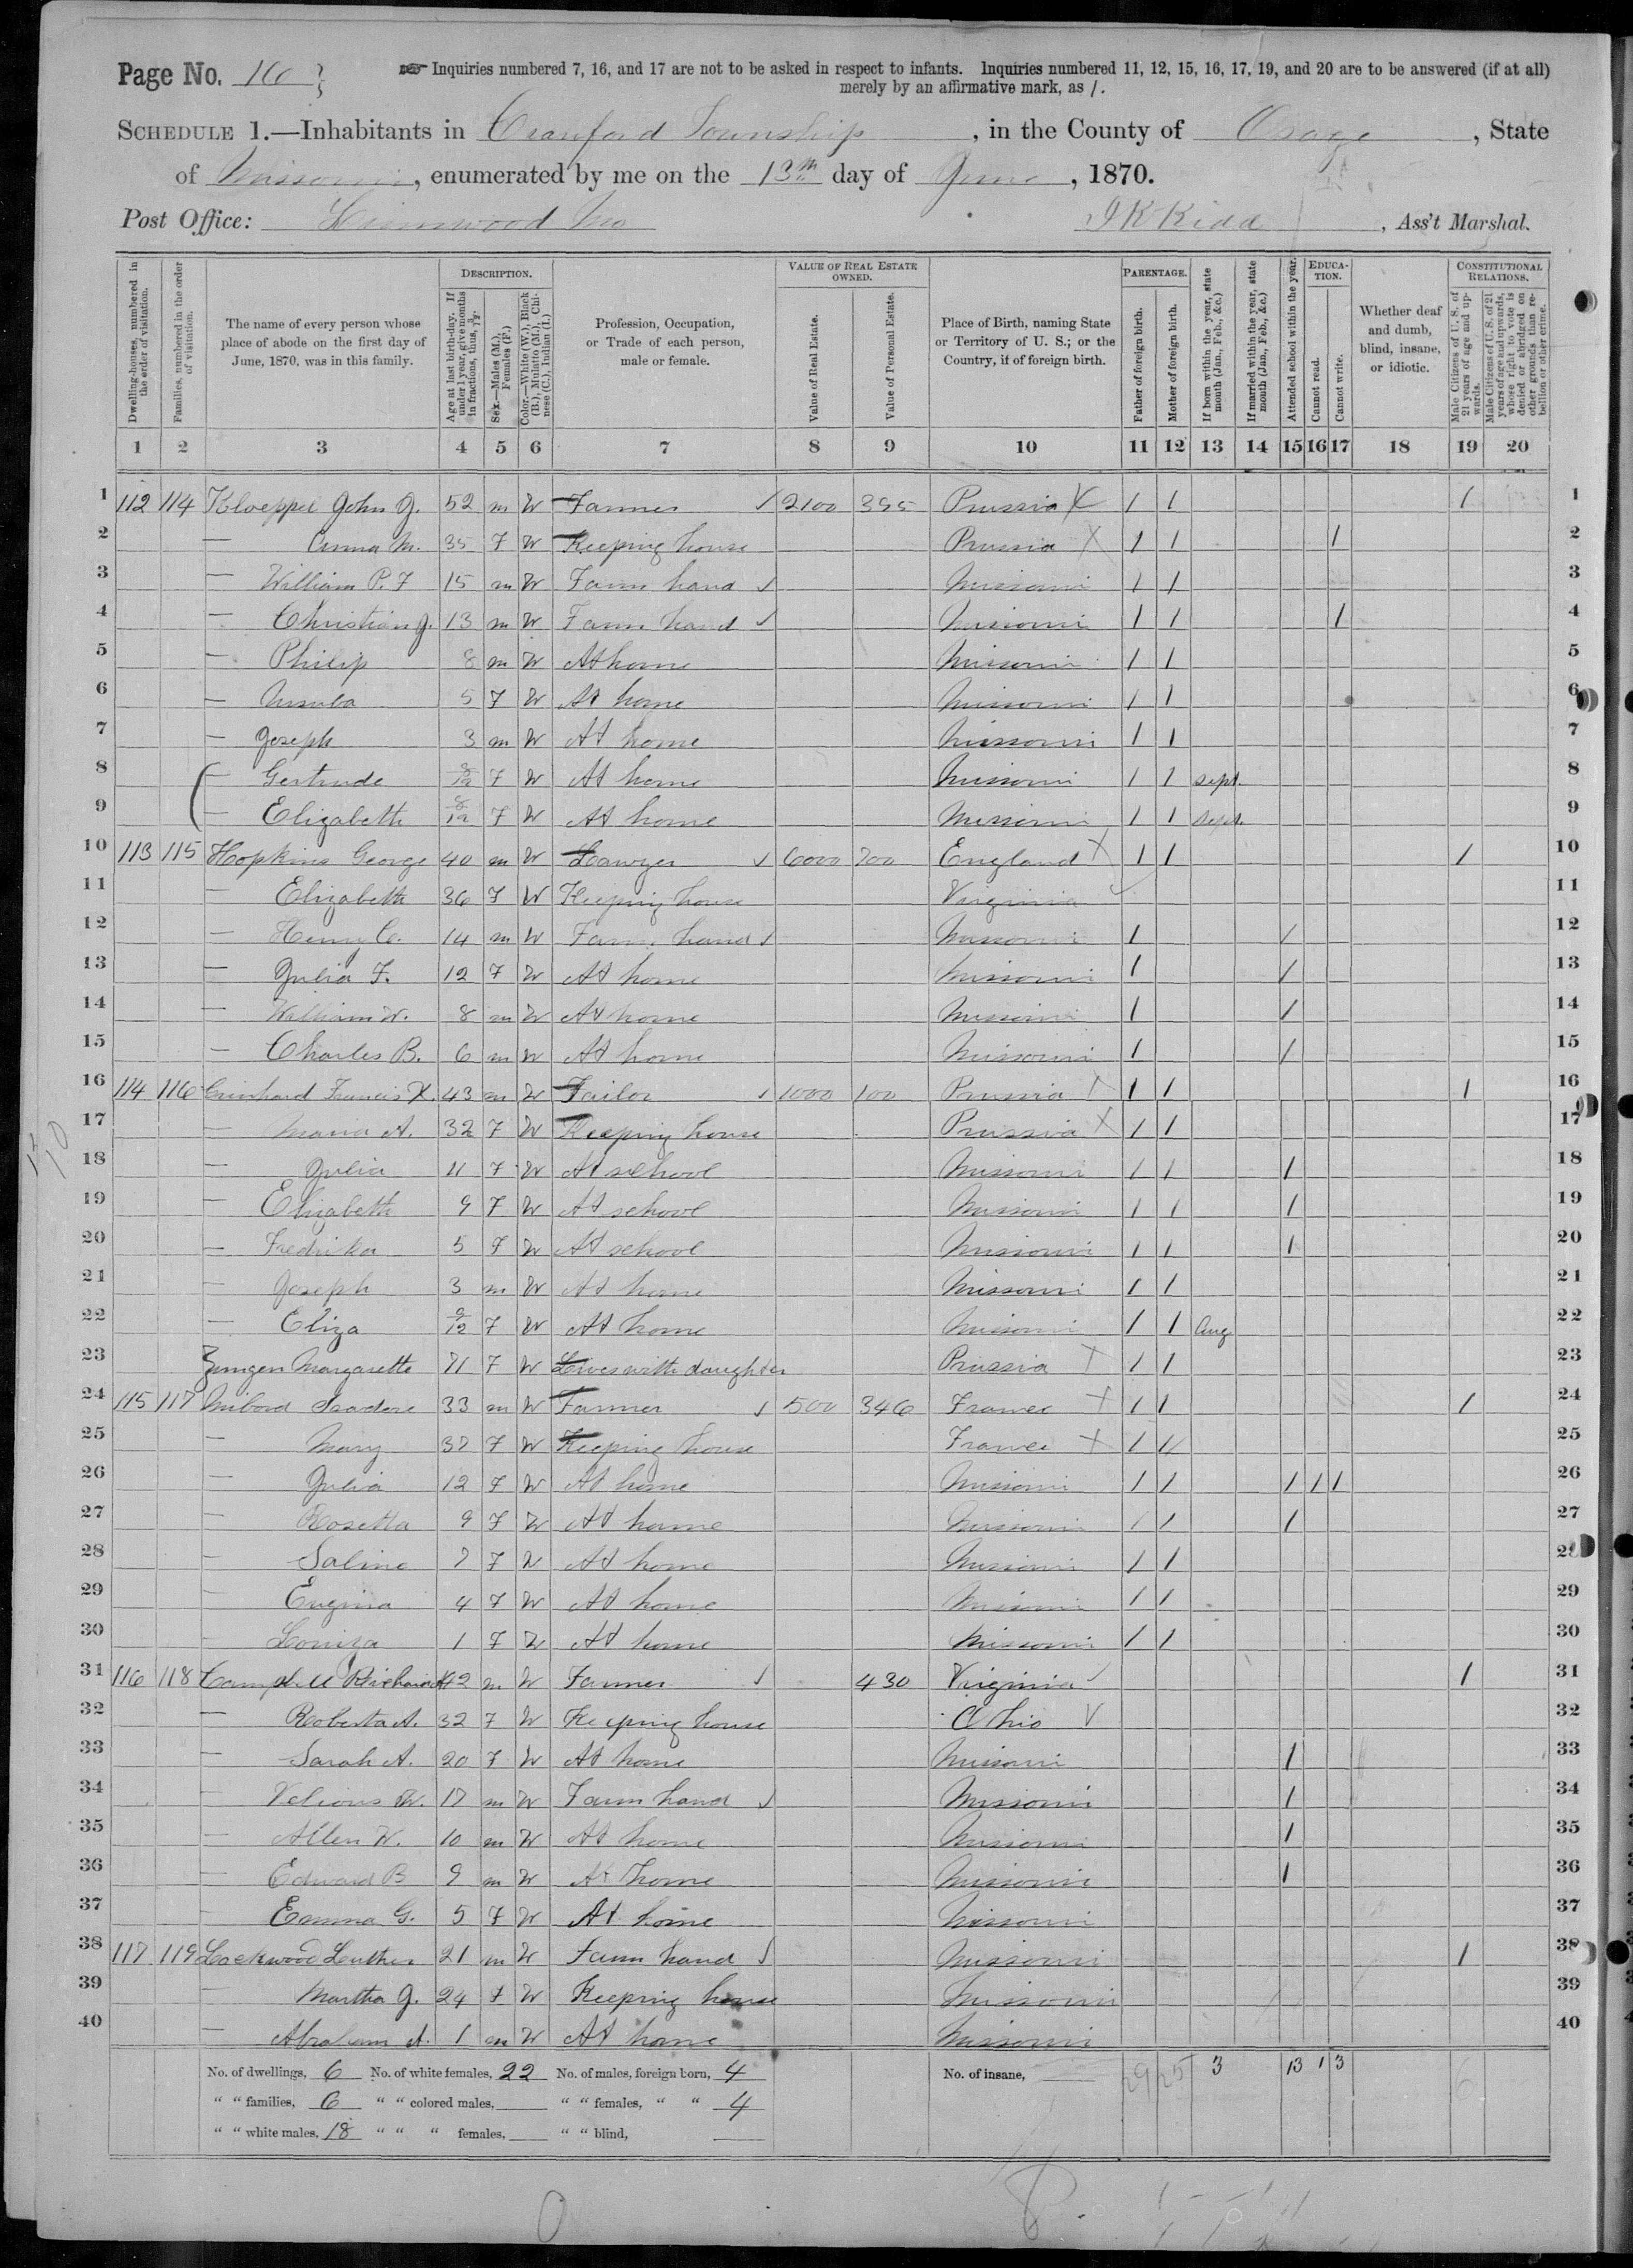 Page No. 16 } Inquiries numbered 7, 16, and 17 are not to be asked in respect to infants. Inquiries numbered 11, 12, 15, 16, 17, 19, and 20 are to be answered (if at all)
merely by an affirmative mark, as /.
SCHEDULE 1.—Inhabitants in Crawford Township, in the County of Osage, State
of Missouri, enumerated by me on the 13th day of June, 1870.
Post Office: Linnwood Mo I K Kidd, Ass't Marshal.
Dwelling-houses, numbered in the order of visitation.
Families, numbered in the order of visitation.
The name of every person whose place of abode on the first day of June, 1870, was in this family.
DESCRIPTION.
Age at last birth-day. If under 1 year, give months in fractions, thus, 3/12.
Sex.—Males (M.), Females (F.)
Color.—White (W.), Black (B.), Mulatto (M.), Chinese (C.), Indian (I.)
Profession, Occupation, or Trade of each person, male or female.
VALUE OF REAL ESTATE OWNED.
Value of Real Estate.
Value of Personal Estate.
Place of Birth, naming State or Territory of U. S.; or the Country, if of foreign birth.
PARENTAGE.
Father of foreign birth.
Mother of foreign birth.
If born within the year, state month (Jan., Feb., &c.)
If married within the year, state month (Jan., Feb., &c.)
Attended school within the year.
EDUCATION.
Cannot read.
Cannot write.
Whether deaf and dumb, blind, insane, or idiotic.
CONSTITUTIONAL RELATIONS.
Male Citizens of U. S. of 21 years of age and upwards.
Male Citizens of U. S. of 21 years of age and upwards, whose right to vote is denied or abridged on other grounds than rebellion or other crime.
1 2 3 4 5 6 7 8 9 10 11 12 13 14 15 16 17 18 19 20
1 112 114 Kloeppel John J. 52 m W Farmer ✓ 2100 395 Prussia X 1 1 1 1
2 — Anna M. 35 F W Keeping house Prussia X 1 1 1 2
3 — William P. F 15 m W Farm hand ✓ Missouri 1 1 3
4 — Christian J. 13 m W Farm hand ✓ Missouri 1 1 1 4
5 — Philip 8 m W At home Missouri 1 1 5
6 — 5 F W At home Missouri 1 1 6
7 — Joseph 3 m W At home Missouri 1 1 7
8 — Gertrude 8/12 F W At home Missouri 1 1 Sept. 8
9 — Elizabeth 8/12 F W At home Missouri 1 1 Sept. 9
10 113 115 Hopkins George 40 m W Lawyer ✓ 6000 700 England X 1 1 1 10
11 — Elizabeth 36 F W Keeping house Virginia ✓ 11
12 — Henry C. 14 m W Farm hand ✓ Missouri 1 1 12
13 — Julia F. 12 F W At home Missouri 1 1 13
14 — William W. 8 m W At home Missouri 1 1 14
15 — Charles B. 6 m W At home Missouri 1 1 15
16 114 116 Francis X. 43 m W Tailor ✓ 1000 100 Prussia X 1 1 1 16
17 — Maria A. 32 F W Keeping house Prussia X 1 1 17
18 — Julia 11 F W At school Missouri 1 1 1 18
19 — Elizabeth 9 F W At school Missouri 1 1 1 19
20 — Fredrika 5 F W At school Missouri 1 1 1 20
21 — Joseph 3 m W At home Missouri 1 1 21
22 — Eliza 9/12 F W At home Missouri 1 1 Aug 22
23 Margarette 71 F W Lives with daughter Prussia X 1 1 23
24 115 117 Isadore 33 m W Farmer ✓ 500 346 France X 1 1 1 24
25 — Mary 37 F W Keeping house France X 1 1 25
26 — Julia 12 F W At home Missouri 1 1 1 1 1 26
27 — Rosetta 9 F W At home Missouri 1 1 1 27
28 — Saline 7 F W At home Missouri 1 1 28
29 — Eugina 4 F W At home Missouri 1 1 29
30 — Louiza 1 F W At home Missouri 1 1 30
31 116 118 Campbell Richard 42 m W Farmer ✓ 430 Virginia ✓ 1 31
32 — Roberta A. 32 F W Keeping house Ohio ✓ 32
33 — Sarah A. 20 F W At home Missouri 1 33
34 — W. 17 m W Farm hand ✓ Missouri 1 34
35 — Allen W. 10 m W At home Missouri 1 35
36 — Edward B 9 m W At home Missouri 1 36
37 — Emma G. 5 F W At home Missouri 37
38 117 119 Lockwood Luther 21 m W Farm hand ✓ Missouri 1 38
39 — Martha J. 24 F W Keeping house Missouri 39
40 — Abraham A. 1 m W At home Missouri 40
No. of dwellings, 6 No. of white females, 22 No. of males, foreign born, 4 No. of insane, 29 25 3 13 1 3 6
" " families, 6 " " colored males, " " females, " " 4
" " white males, 18 " " " females, " " blind,